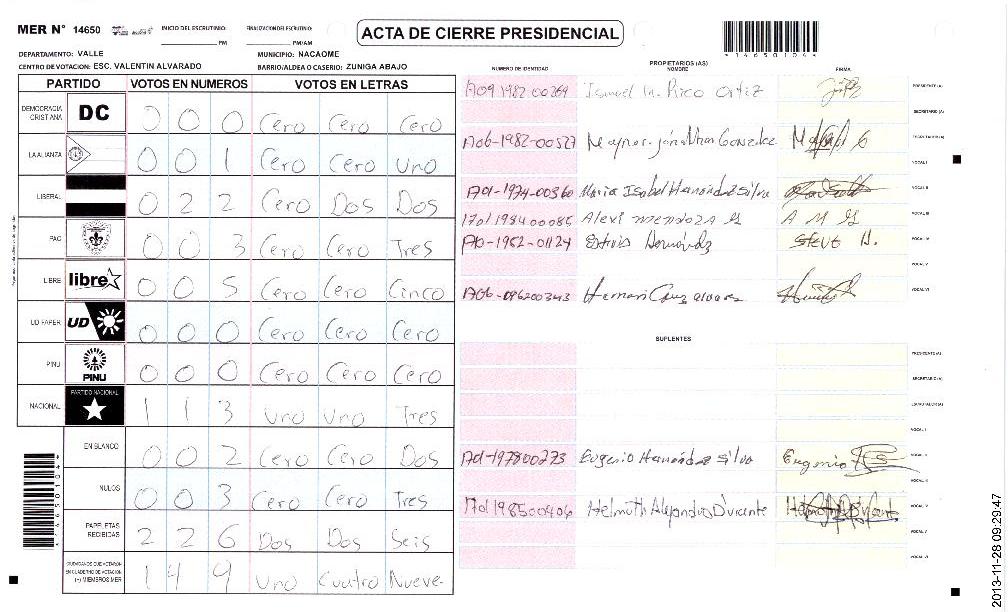 MER N° 14650 INICIO DEL ESCRUTINIO: FINALIZACION DEL ESCRUTINIO: ACTA DE CIERRE PRESIDENCIAL
PM PM/AM *14650104*
DEPARTAMENTO: VALLE MUNICIPIO: NACAOME
CENTRO DE VOTACION: ESC. VALENTIN ALVARADO BARRIO/ALDEA O CASERIO: ZUNIGA ABAJO
PARTIDO VOTOS EN NUMEROS VOTOS EN LETRAS
DEMOCRACIA CRISTIANA DC 0 0 0 Cero Cero Cero
LA ALIANZA 0 0 1 Cero Cero Uno
LIBERAL 0 2 2 Cero Dos Dos
PAC 0 0 3 Cero Cero Tres
LIBRE libre 0 0 5 Cero Cero Cinco
UD FAPER UD 0 0 0 Cero Cero Cero
PINU PINU 0 0 0 Cero Cero Cero
NACIONAL PARTIDO NACIONAL 1 1 3 Uno Uno Tres
EN BLANCO 0 0 2 Cero Cero Dos
NULOS 0 0 3 Cero Cero Tres
PAPELETAS RECIBIDAS 2 2 6 Dos Dos Seis
CIUDADANOS QUE VOTARON EN CUADERNO DE VOTACION (+) MIEMBROS MER 1 4 9 Uno Cuatro Nueve
PROPIETARIOS (AS)
NUMERO DE IDENTIDAD NOMBRE FIRMA
1709 1982 00269 Ismael Ortiz PRESIDENTE (A)
SECRETARIO (A)
1706-1982-00527 Maynor jonathan Gonzalez ESCRUTADOR (A)
VOCAL I
1701-1974-00360 Maria Isabel Hernandez Silva VOCAL II
1701 1984 00085 Alexi mendoza G A M G VOCAL III
VOCAL IV
VOCAL V
1706-096200343 Hernan Cruz alvarez VOCAL VI
SUPLENTES
PRESIDENTE (A)
SECRETARIO (A)
ESCRUTADOR (A)
VOCAL I
1701-197800273 Eugenio Hernandez Silva Eugenio VOCAL II
VOCAL III
1701198500406 Helmuth Alejandro Durante VOCAL IV
VOCAL V
VOCAL VI
2013-11-28 09:29:47